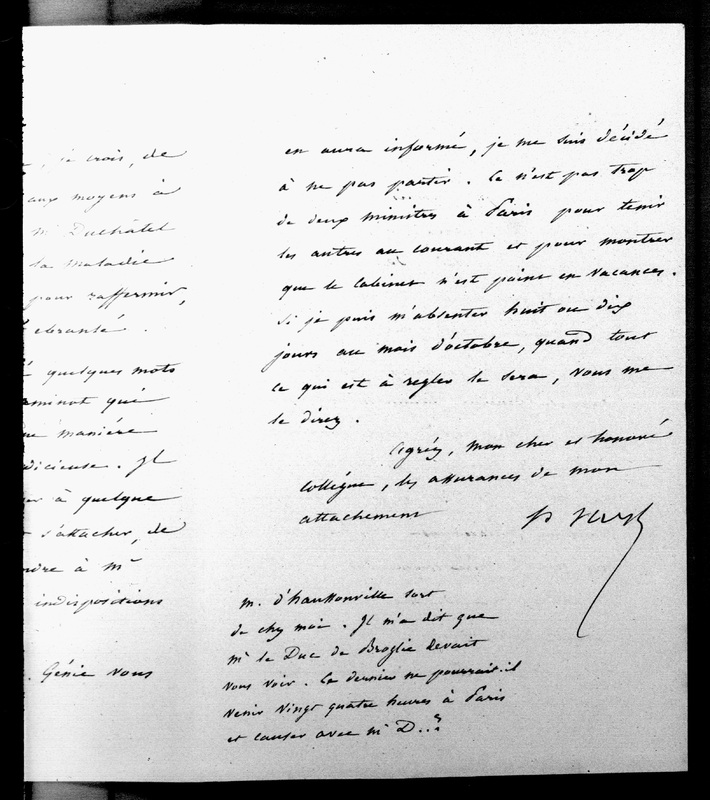 , je crois, de
aux moyens à
Mr Duchâtel
la maladie
pour raffermir,
ebranlé.
quelques mots
que
manière
dicieuse. Il
à quelque
s'attacher, de
à Mr
indispositions
. Génie vous
en aura informé, je me suis décidé
à ne pas partir. Ce n'est pas trop
de deux ministres à Paris pour tenir
les autres au courant et pour montrer
que le Cabinet n'est point en vacances.
Si je puis m'absenter huit ou dix
jours au mois d'octobre, quand tout
ce qui est à regler le sera, vous me
le direz.
Agréez, mon cher et honoré
Collègue, les assurances de mon
attachement
M. d'haussonville sort
de chez moi. Il m'a dit que
Mr le Duc de Broglie devait
vous voir. Ce dernier ne pourrait-il
venir vingt quatre heures à Paris
et causer avec Mr D..?